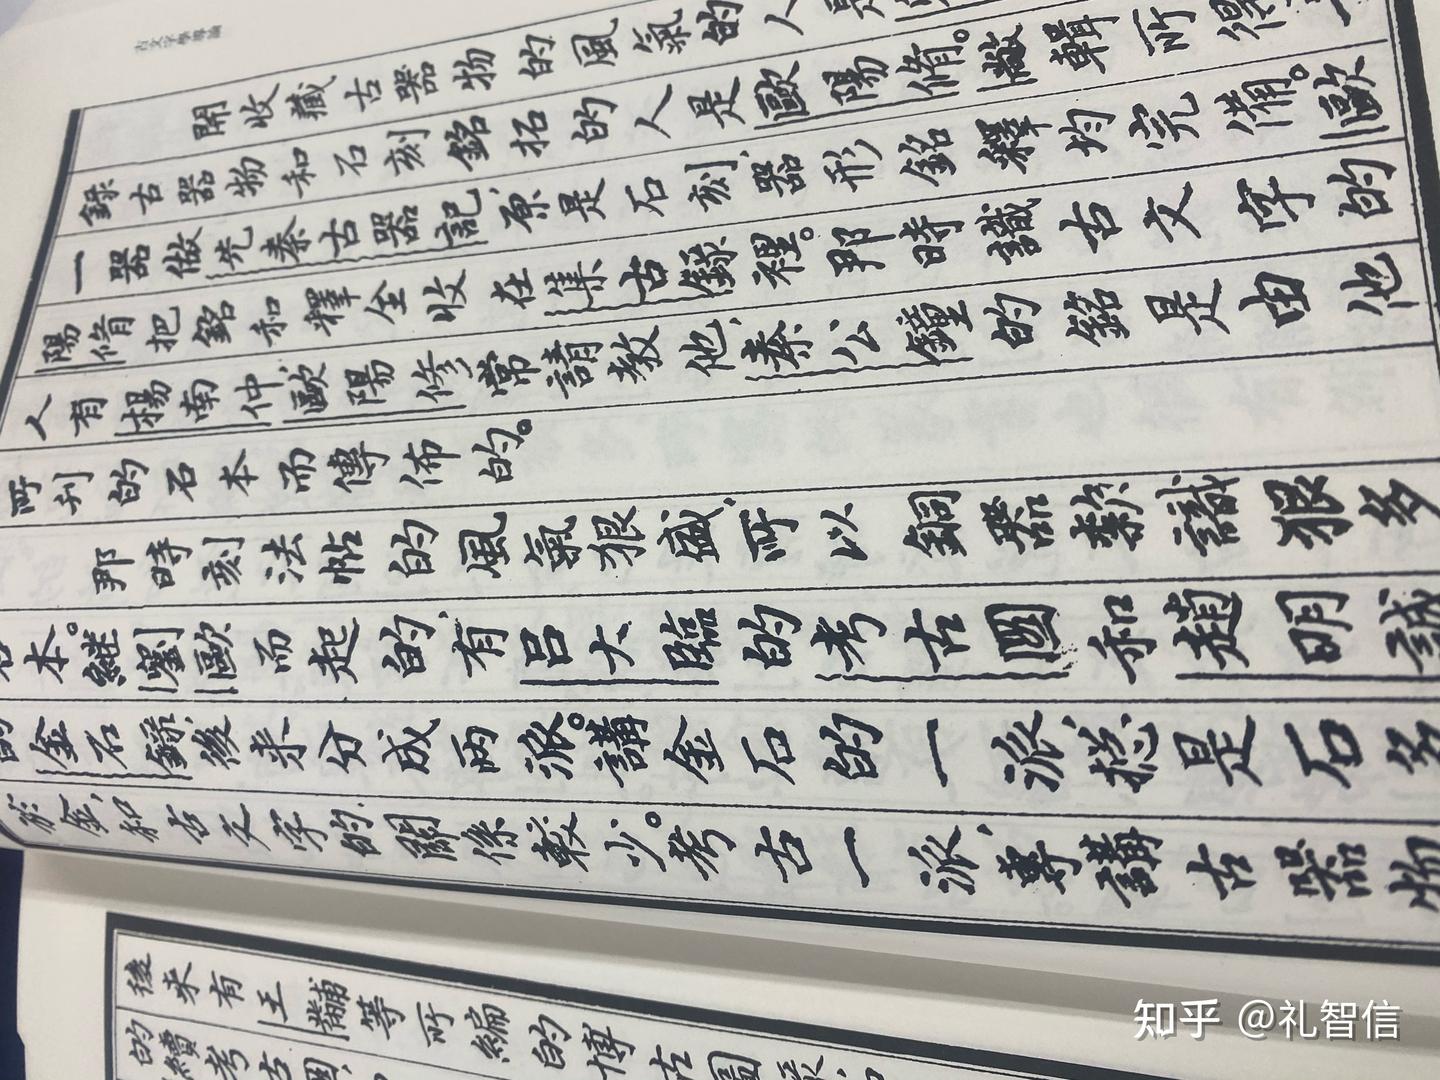 古文字學導論
開收藏古器物的風氣的人是
錄古器物和石刻銘拓的人是歐陽脩。敞輯所得
一器做先秦古器記,原是石刻,器形銘釋均完備。歐
陽脩把銘和釋全收在集古錄裡。那時識古文字的
人有楊南仲,歐陽修常請教他,秦公鐘的銘是由他
所刊的石本而傳佈的。
那時刻法帖的風氣狠盛,所以銅器款識狠多
石本。繼劉歐而起的,有呂大臨的考古圖和趙明誠
的金石錄,後來分成兩派。講金石的一派,總是石多
於金,和古文字的關係較少。考古一派,專講古器物
後來有王黼等所編的博古圖
的續考古圖,
知乎 @礼智信